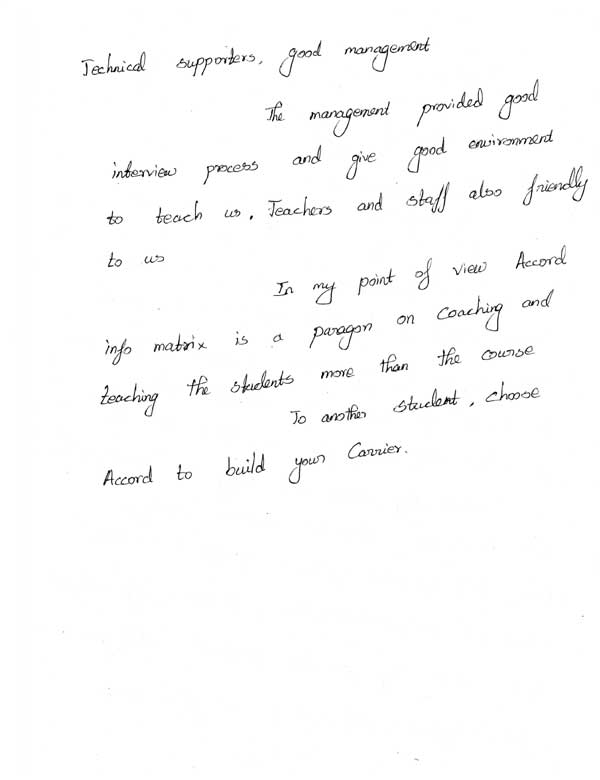 Technical supporters, good management
The management provided good
interview process and give good environment
to teach us. Teachers and staff also friendly
to us
In my point of view Accord
info matrix is a paragon on coaching and
teaching the students more than the course
To another student, choose
Accord to build your Carrier.